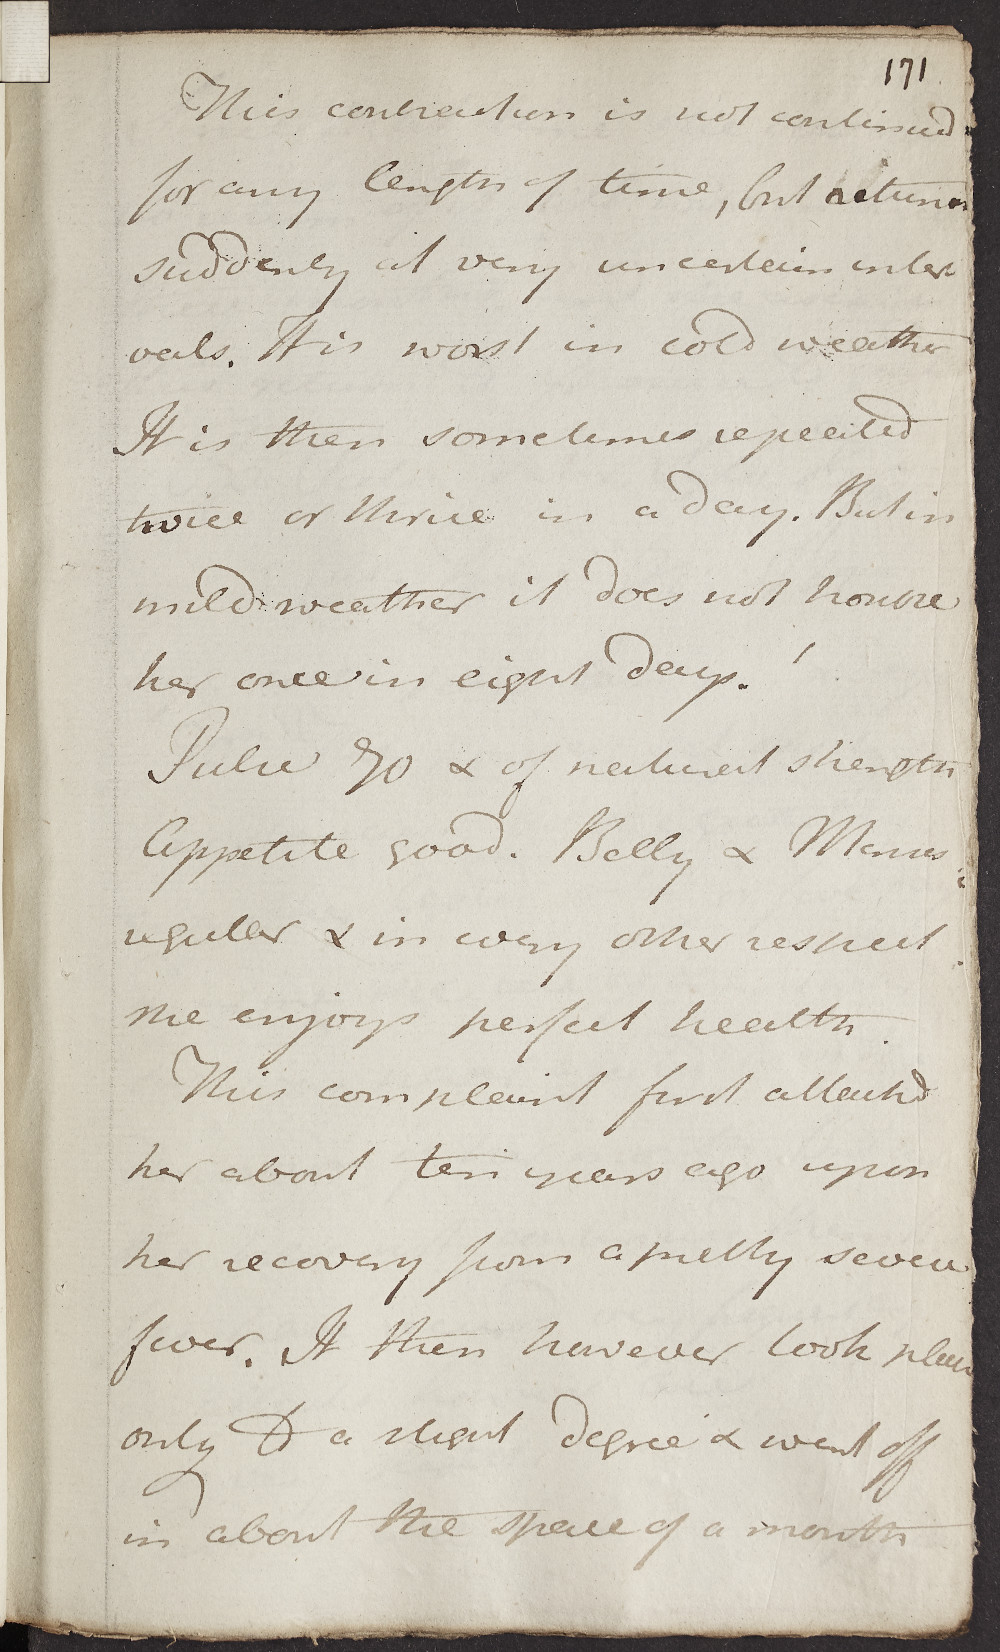 171
This contraction is not continued
for any length of time, but returns
suddenly at very uncertain inter
vals. It is worst in cold weather
It is then sometimes repeated
twice or thrice in a day. But in
mild weather it does not trouble
her once in eight days.
Pulse 70 & of natural strength
Appetite good. Belly & Menses
regular & in every other respect
she enjoys perfect health.
This complaint first attack'd
her about ten years ago upon
her recovery from a pretty severe
fever. It then however took place
only to a slight degree & went off
in about the space of a month